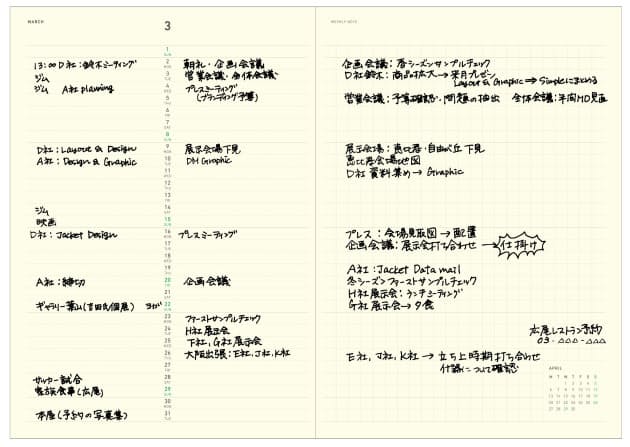 MARCH
3
MONTHLY NOTE
1
2
13:00 D社:鈴木ミーティング
朝礼・企画会議
企画会議:春シーズンサンプルチェック
3
ジム
営業会議・全体会議
D社鈴木:商品拡大→来月プレゼン
4
ジム A社 planning
プレスミーティング
Layout & Graphic ⇒ Simpleにまとめる
(ブランディング予算)
5
営業会議:予算確認・問題の抽出 全体会議:年間MD見直
6
7
8
9
D社:Layout & Design
展示会場下見
展示会場:恵比寿・自由が丘下見
10
A社:Design & Graphic
DM Graphic
恵比寿会場地図
11
D社 資料集め→ Graphic
12
13
14
ジム
15
映画
16
D社:Jacket Design
プレスミーティング
プレス:会場見取図→配置
17
企画会議:展示会打ち合わせ→仕掛け
18
19
A社:Jacket Data mail
20
A社:締切
企画会議
冬シーズンファーストサンプルチェック
21
H社展示会:ランチミーティング
22
ギャラリー葉山(吉田氏個展) ヨガ
G社展示会→夕食
23
ファーストサンプルチェック
24
H社展示会
広尾レストラン予約
25
F社、G社展示会
03-△△△-△△△
26
大阪出張:E社,J社,K社
E社,J社,K社→立ち上時期打ち合わせ
27
什器について確認
28
サッカー試合
29
家族食事(広尾)
30
31
本屋(手彫りの写真集)
APRIL
M T W T F S S
1 2 3 4 5
6 7 8 9 10 11 12
13 14 15 16 17 18 19
20 21 22 23 24 25 26
27 28 29 30